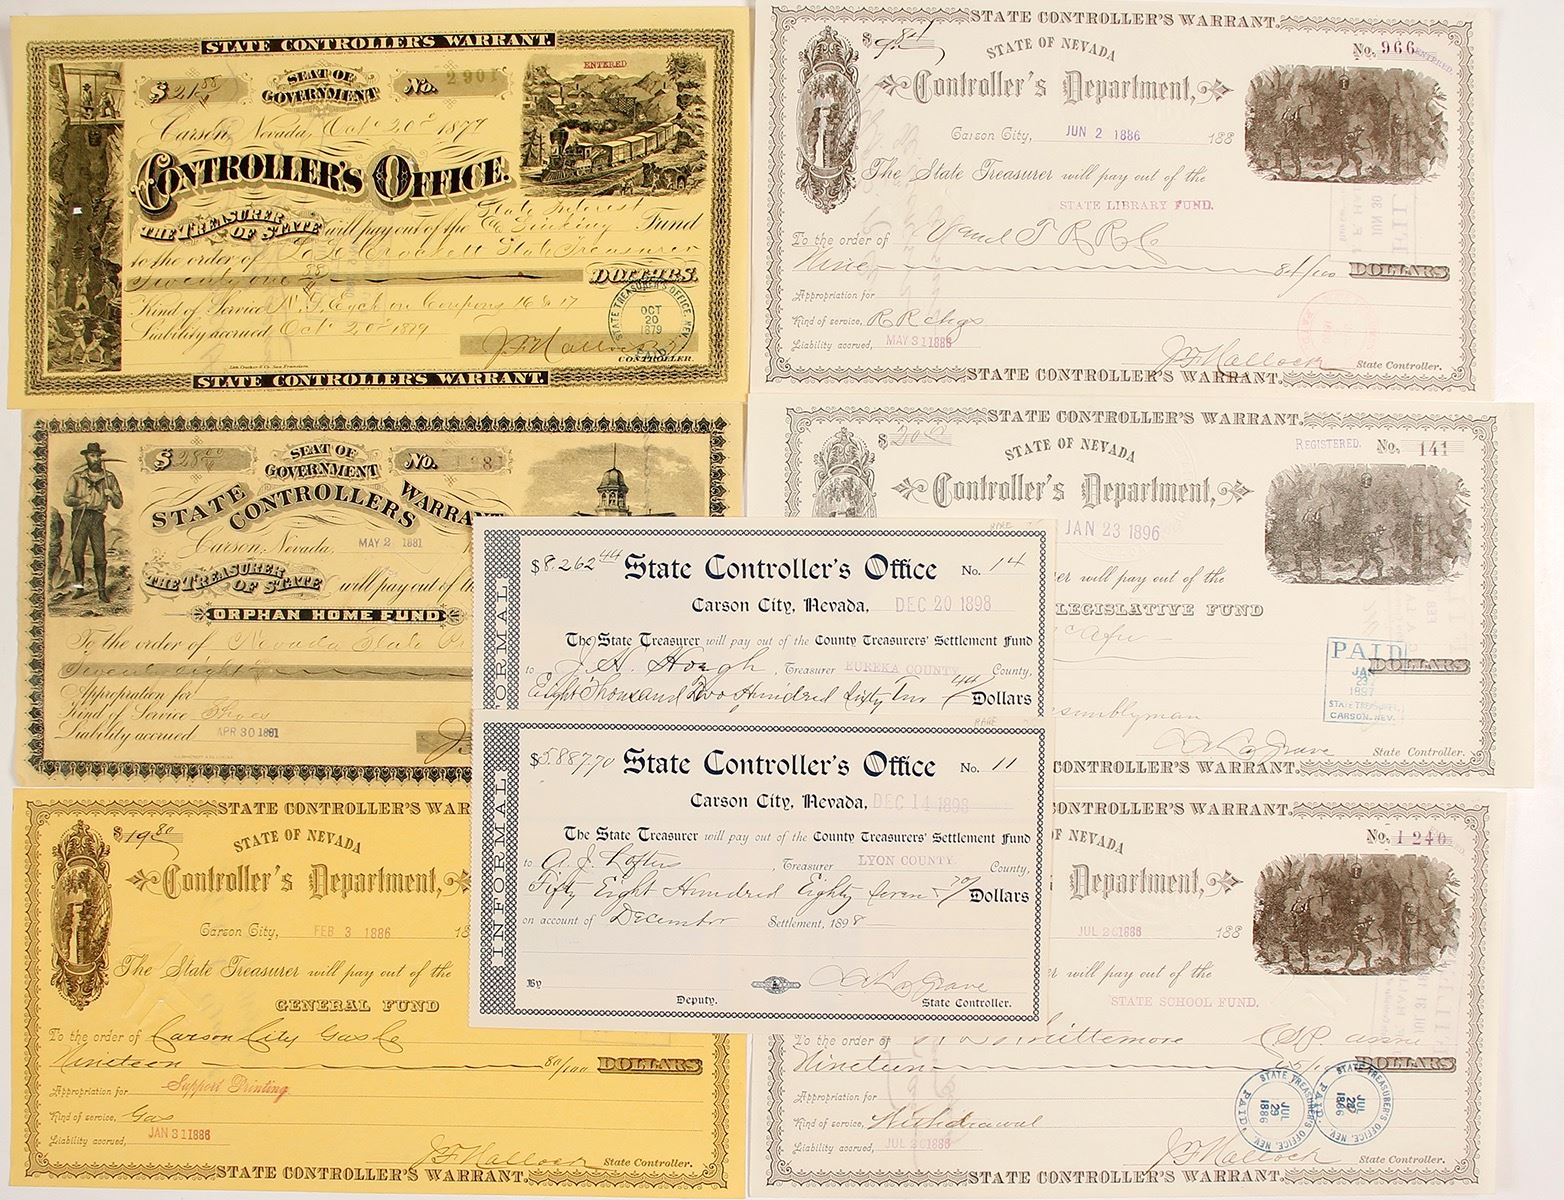 STATE CONTROLLER'S WARRANT.
$21.88 SEAT OF GOVERNMENT No. 2901
ENTERED
Carson, Nevada, Oct 20th 1879
CONTROLLER'S OFFICE.
THE TREASURER OF STATE will pay out of the State Interest & Sinking Fund
to the order of L. L. Crockett State Treasurer
Twenty one 88 DOLLARS.
Kind of Service on Coupons 16 & 17
Liability accrued Oct 20th 1879
STATE TREASURER'S OFFICE, NEV. OCT 20 1879 PAID
J F Hallock
CONTROLLER.
STATE CONTROLLER'S WARRANT.
STATE CONTROLLER'S WARRANT.
$9.81 STATE OF NEVADA No. 966
ENTERED.
Controller's Department,
Carson City, JUN 2 1886 188
The State Treasurer will pay out of the
STATE LIBRARY FUND.
To the order of V and T R R Co
Nine 81/100 DOLLARS
Appropriation for
Kind of service, R R chgs
Liability accrued, MAY 31 1886
J F Hallock State Controller.
STATE CONTROLLER'S WARRANT.
$28.00 SEAT OF GOVERNMENT No.
STATE CONTROLLERS WARRANT
Carson, Nevada, MAY 2 1881
THE TREASURER OF STATE will pay out of the
ORPHAN HOME FUND
To the order of Nevada State
Twenty eight
Appropriation for
Kind of Service Shoes
Liability accrued APR 30 1881
STATE CONTROLLER'S WARRANT.
$20.00 STATE OF NEVADA REGISTERED. No. 141
Controller's Department,
JAN 23 1896
er will pay out of the
LEGISLATIVE FUND
DOLLARS
PAID JAN 23 1897 STATE TREASURER, CARSON, NEV.
ssemblyman
C A LaGrave State Controller.
CONTROLLER'S WARRANT.
RARE
INFORMAL
$8,262.44 State Controller's Office No. 14
Carson City, Nevada, DEC 20 1898
The State Treasurer will pay out of the County Treasurers' Settlement Fund
to J. H. Hough, Treasurer EUREKA COUNTY County,
Eight Thousand Two Hundred Sixty Two 44 Dollars
RARE
INFORMAL
$5,887.70 State Controller's Office No. 11
Carson City, Nevada, DEC 14 1898
The State Treasurer will pay out of the County Treasurers' Settlement Fund
to A. J. Loftus, Treasurer LYON COUNTY. County,
Fifty Eight Hundred Eighty Seven 70 Dollars
on account of December Settlement, 1898
By Deputy. C A LaGrave State Controller.
STATE CONTROLLER'S WAR
$19.80 STATE OF NEVADA
Controller's Department,
Carson City, FEB 3 1886 18
The State Treasurer will pay out of the
GENERAL FUND
To the order of Carson City Gas Co
Nineteen 80/100 DOLLARS
Appropriation for Support Printing
Kind of service, Gas
Liability accrued, JAN 31 1886
J F Hallock State Controller.
STATE CONTROLLER'S WARRANT.
CONTROLLER'S WARRANT.
OF NEVADA No. 1240
Department,
JUL 26 1886 188
will pay out of the
STATE SCHOOL FUND.
To the order of Whittemore
Nineteen DOLLARS
Appropriation for
Kind of service, Withdrawal
Liability accrued, JUL 26 1886
STATE TREASURER'S OFFICE, NEV. PAID. JUL 29 1886
STATE TREASURER'S OFFICE, NEV. PAID. JUL 1886
J F Hallock State Controller.
STATE CONTROLLER'S WARRANT.